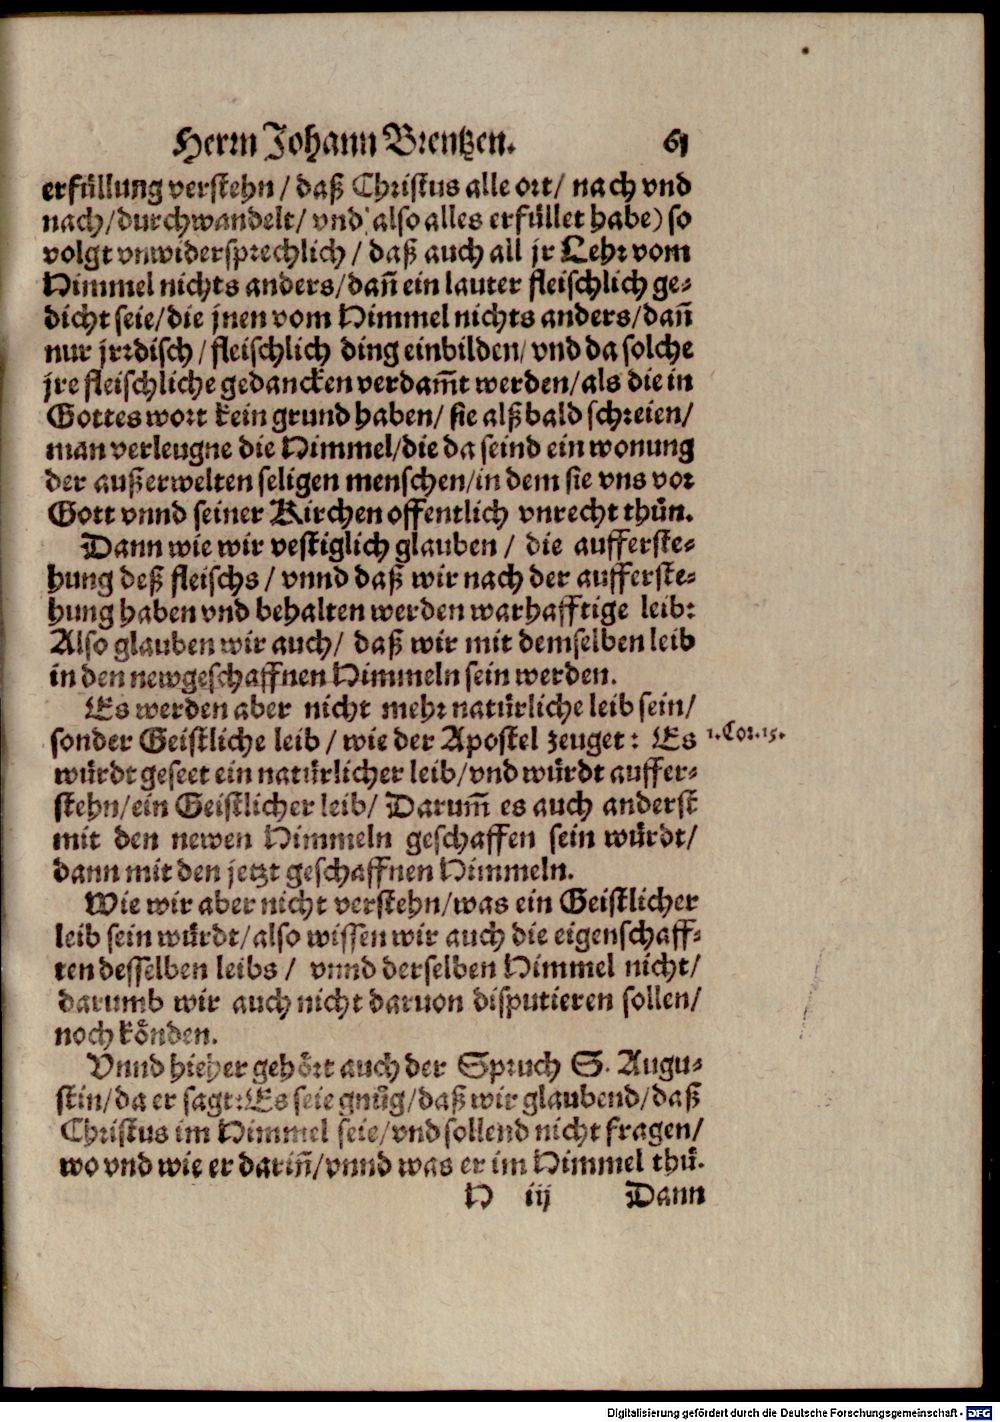 Herrn Johann Brentzen. 61
erfüllung verstehn / daß Christus alle ort / nach vnd
nach / durchwandelt / vnd also alles erfüllet habe) so
volgt vnwidersprechlich / daß auch all jr Lehr vom
Himmel nichts anders / dañ ein lauter fleischlich ge-
dicht seie / die jnen vom Himmel nichts anders / dañ
nur jrrdisch / fleischlich ding einbilden / vnd da solche
jre fleischliche gedancken verdam̃t werden / als die in
Gottes wort kein grund haben / sie alß bald schreien /
man verleugne die Himmel / die da seind ein wonung
der außerwelten seligen menschen / in dem sie vns vor
Gott vnnd seiner Kirchen offentlich vnrecht thůn.
Dann wie wir vestiglich glauben / die aufferste-
hung deß fleischs / vnnd daß wir nach der aufferste-
hung haben vnd behalten werden warhafftige leib:
Also glauben wir auch / daß wir mit demselben leib
in den newgeschaffnen Himmeln sein werden.
Es werden aber nicht mehr natürliche leib sein /
sonder Geistliche leib / wie der Apostel zeuget: Es
1. Cor. 15.
würdt geseet ein natürlicher leib / vnd würdt auffer-
stehn / ein Geistlicher leib / Darum̃ es auch anderst
mit den newen Himmeln geschaffen sein würdt /
dann mit den jetzt geschaffnen Himmeln.
Wie wir aber nicht verstehn / was ein Geistlicher
leib sein würdt / also wissen wir auch die eigenschaff-
ten desselben leibs / vnnd derselben Himmel nicht /
darumb wir auch nicht daruon disputieren sollen /
noch könden.
Vnnd hieher gehört auch der Spruch S. Augu-
stin / da er sagt: Es seie gnůg / daß wir glaubend / daß
Christus im Himmel seie / vnd sollend nicht fragen /
wo vnd wie er dariñ / vnnd was er im Himmel thů.
H iij Dann
Digitalisierung gefördert durch die Deutsche Forschungsgemeinschaft - DFG